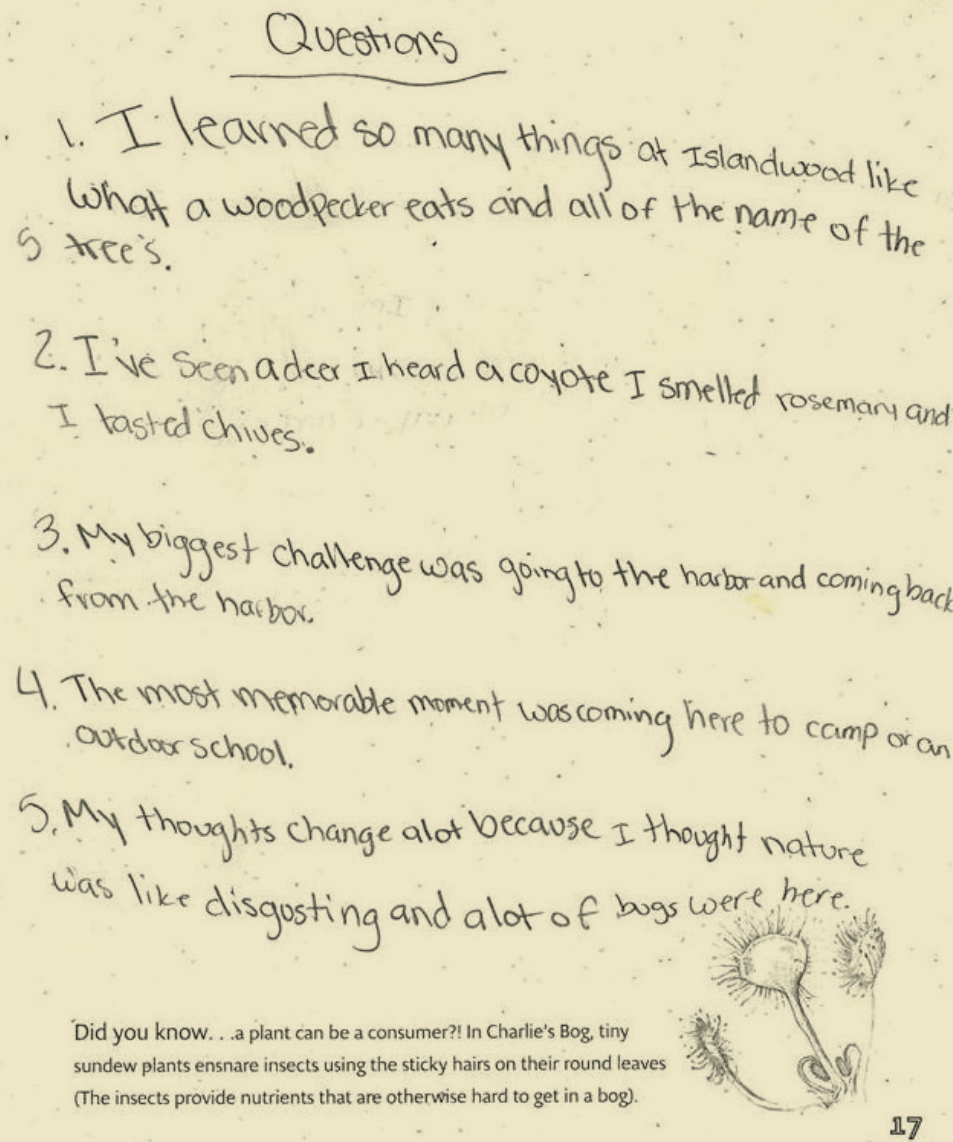 Questions
1. I learned so many things at Islandwood like
what a woodpecker eats and all of the name of the
5 tree's.
2. I've seen a deer I heard a coyote I smelled rosemary and
I tasted chives.
3. My biggest challenge was going to the harbor and coming back
from the harbor.
4. The most memorable moment was coming here to camp or an
outdoor school.
5. My thoughts change alot because I thought nature
was like disgosting and alot of bugs were here.
Did you know. . .a plant can be a consumer?! In Charlie's Bog, tiny
sundew plants ensnare insects using the sticky hairs on their round leaves
(The insects provide nutrients that are otherwise hard to get in a bog).
17